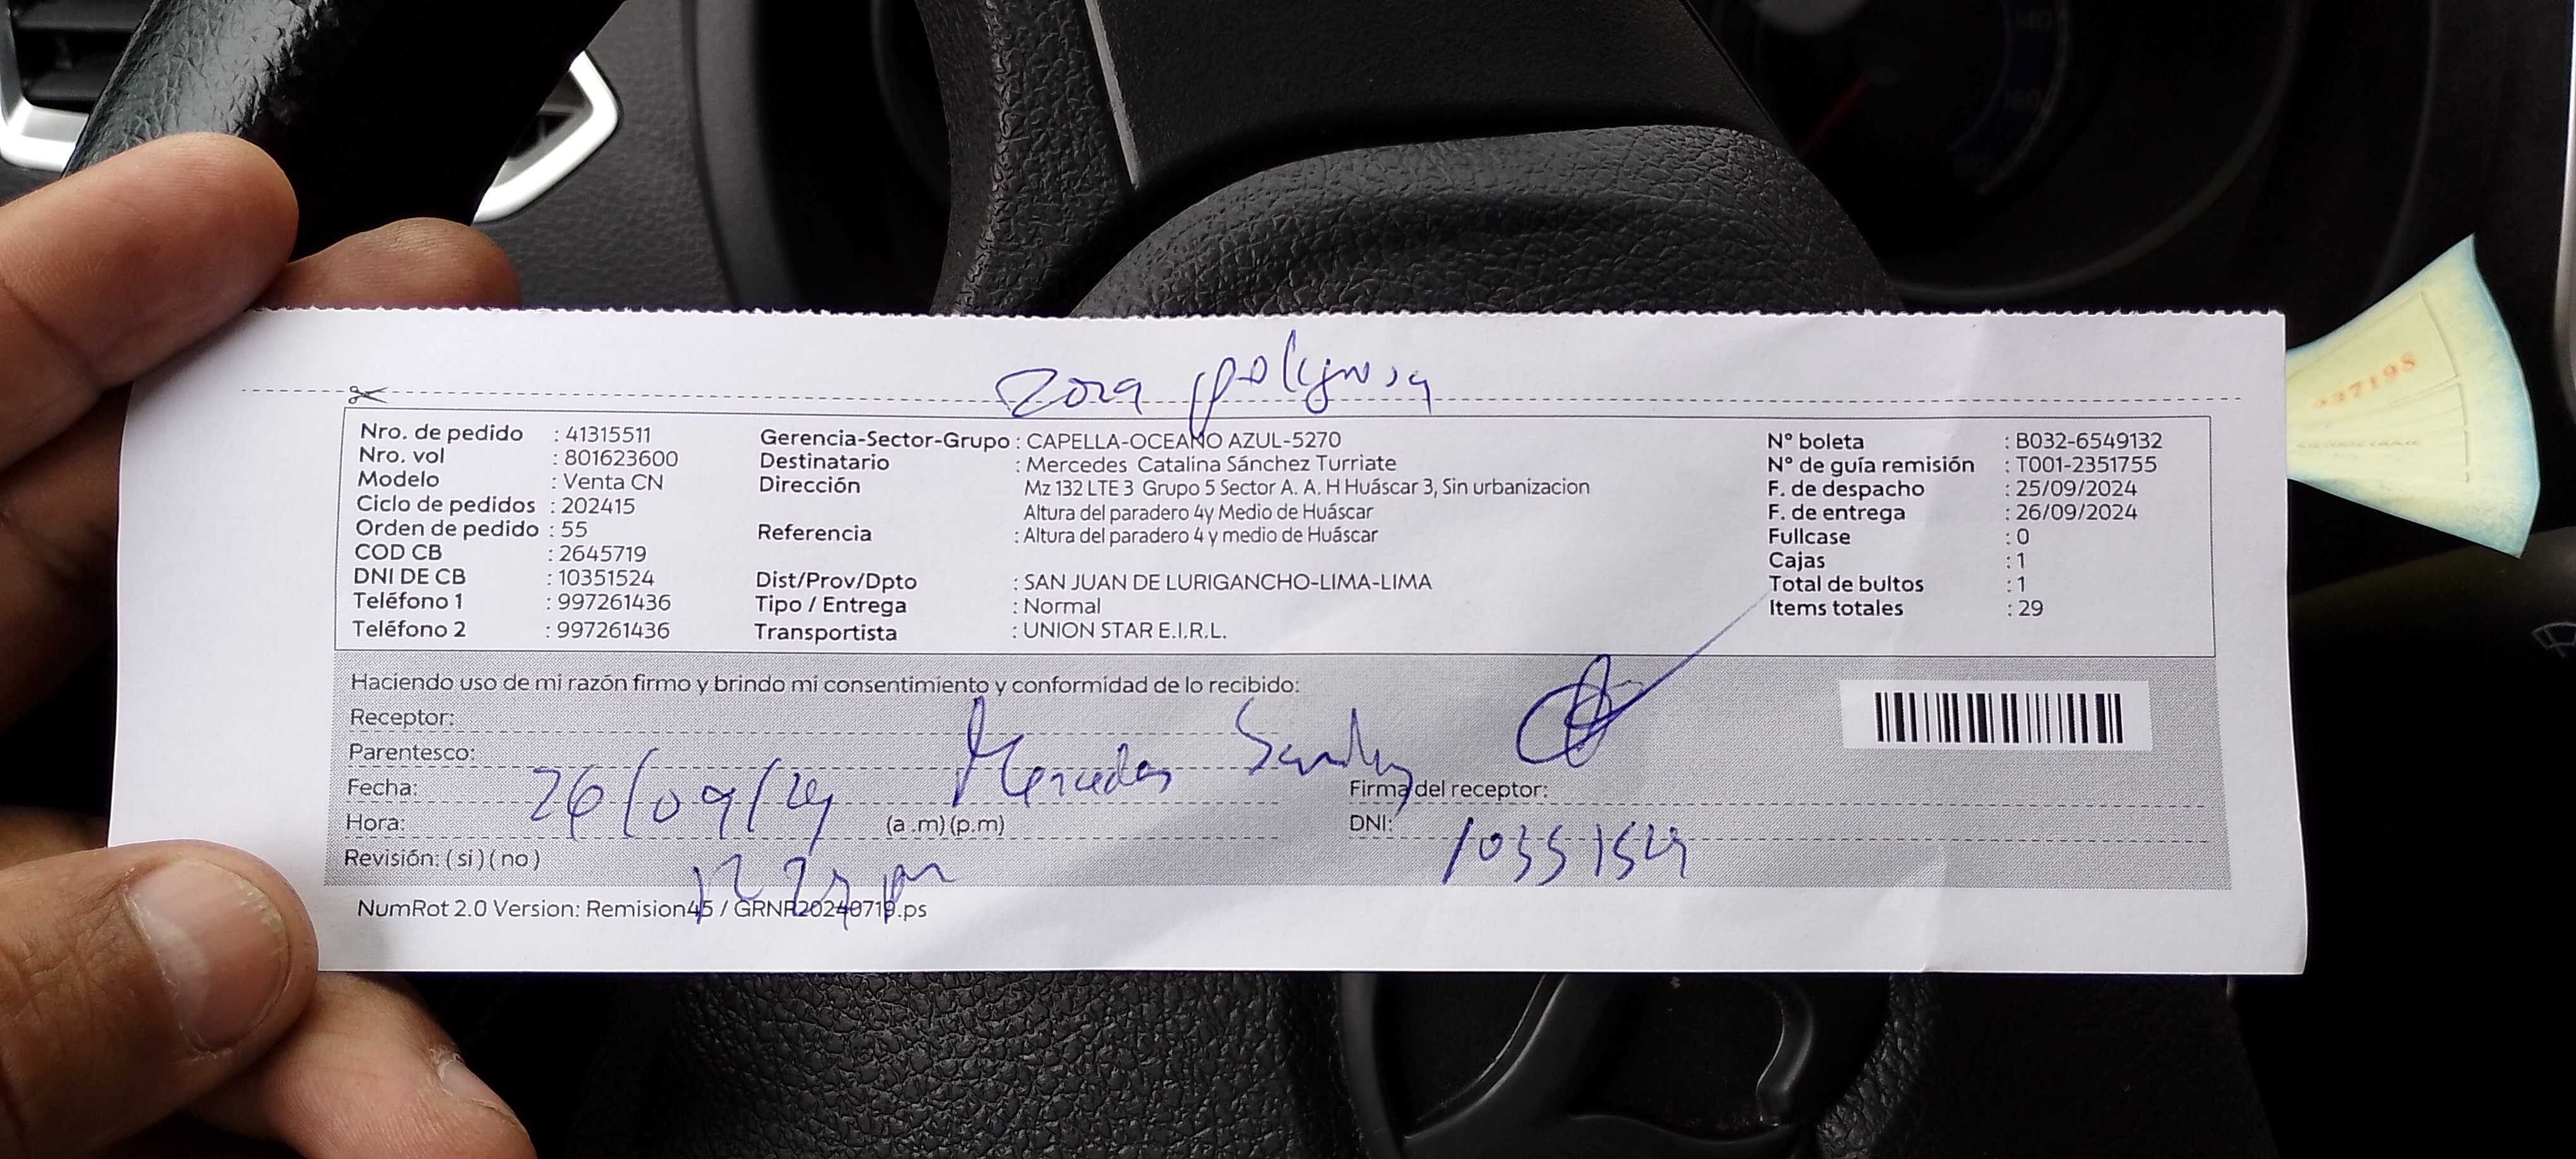 Zona peligrosa
Nro. de pedido : 41315511
Nro. vol : 801623600
Modelo : Venta CN
Ciclo de pedidos : 202415
Orden de pedido : 55
COD CB : 2645719
DNI DE CB : 10351524
Teléfono 1 : 997261436
Teléfono 2 : 997261436
Gerencia-Sector-Grupo : CAPELLA-OCEANO AZUL-5270
Destinatario : Mercedes Catalina Sánchez Turriate
Dirección Mz 132 LTE 3 Grupo 5 Sector A. A. H Huáscar 3, Sin urbanizacion
Altura del paradero 4y Medio de Huáscar
Referencia : Altura del paradero 4 y medio de Huáscar
Dist/Prov/Dpto : SAN JUAN DE LURIGANCHO-LIMA-LIMA
Tipo / Entrega : Normal
Transportista : UNION STAR E.I.R.L.
N° boleta : B032-6549132
N° de guía remisión : T001-2351755
F. de despacho : 25/09/2024
F. de entrega : 26/09/2024
Fullcase : 0
Cajas : 1
Total de bultos : 1
Items totales : 29
Haciendo uso de mi razón firmo y brindo mi consentimiento y conformidad de lo recibido:
Receptor: Mercedes
Parentesco:
Fecha: 26/09/24
Firma del receptor:
Hora: (a .m) (p.m)
DNI: 10351524
Revisión: ( si ) ( no )
12 24 pm
NumRot 2.0 Version: Remision45 / GRNR20240719.ps